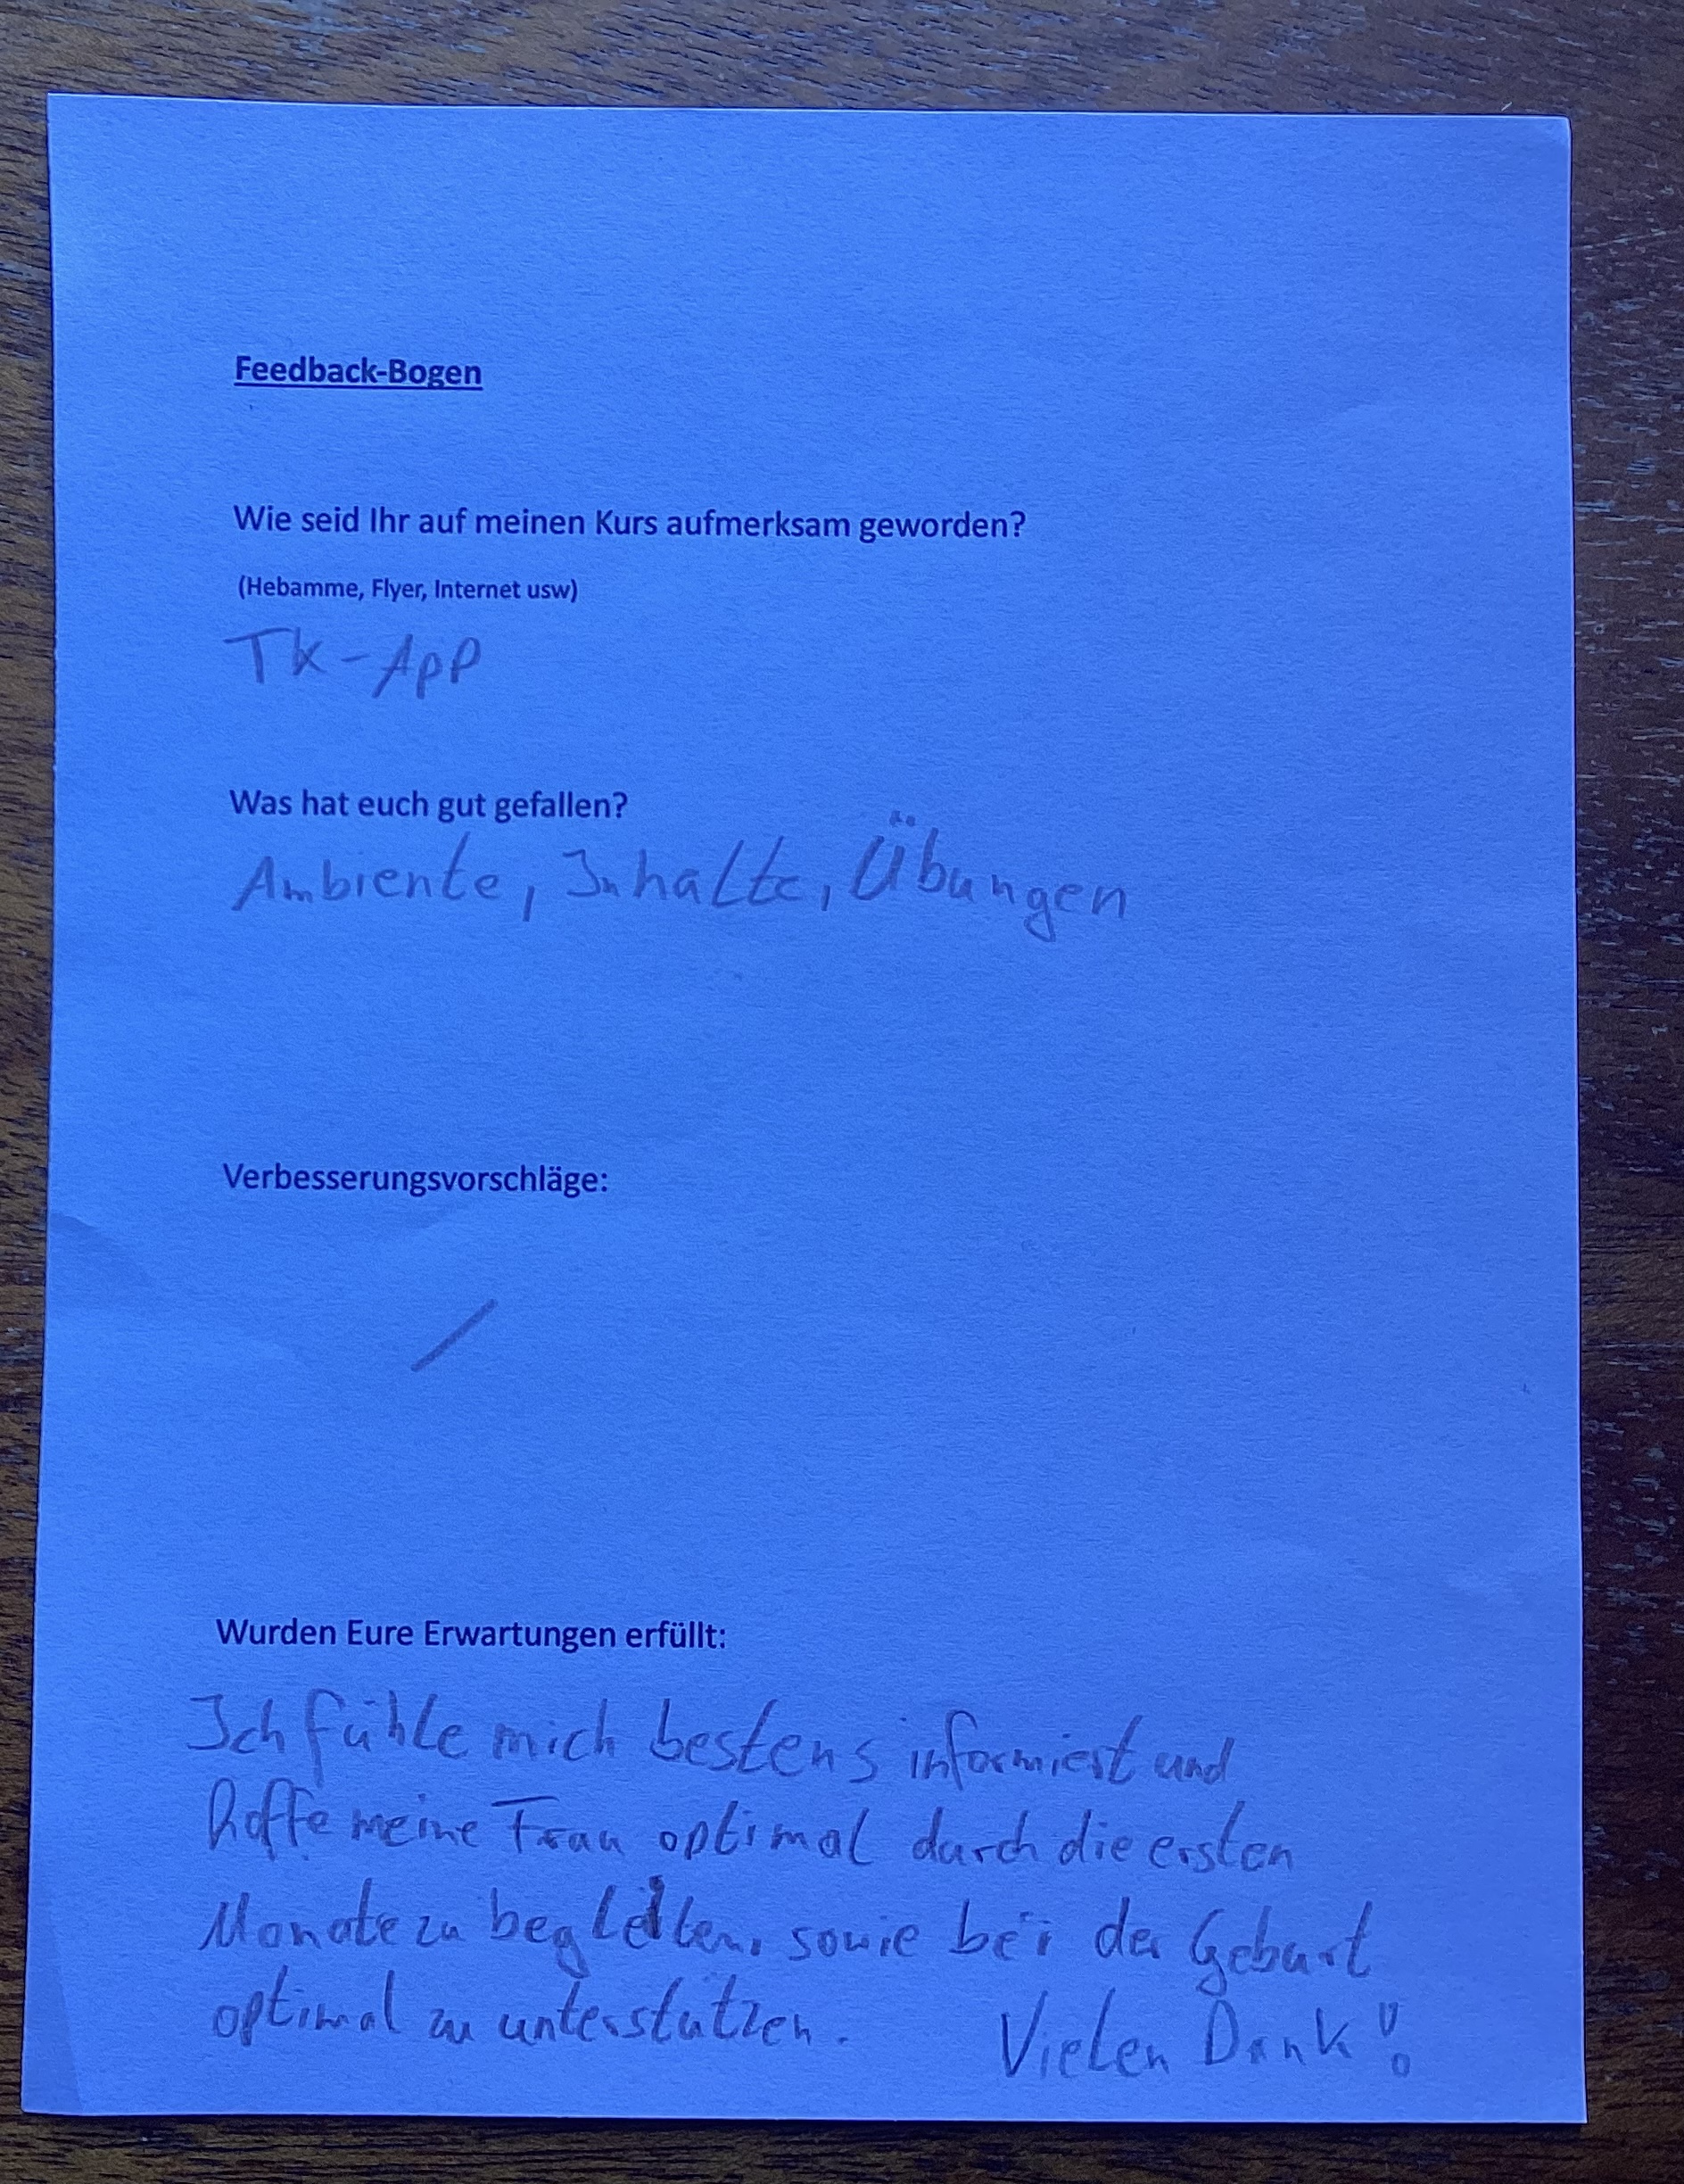 Feedback-Bogen
Wie seid Ihr auf meinen Kurs aufmerksam geworden?
(Hebamme, Flyer, Internet usw)
TK-App
Was hat euch gut gefallen?
Ambiente, Inhalte, Übungen
Verbesserungsvorschläge:
/
Wurden Eure Erwartungen erfüllt:
Ich fühle mich bestens informiert und
hoffe meine Frau optimal durch die ersten
Monate zu begleiten, sowie bei der Geburt
optimal zu unterstützen. Vielen Dank!